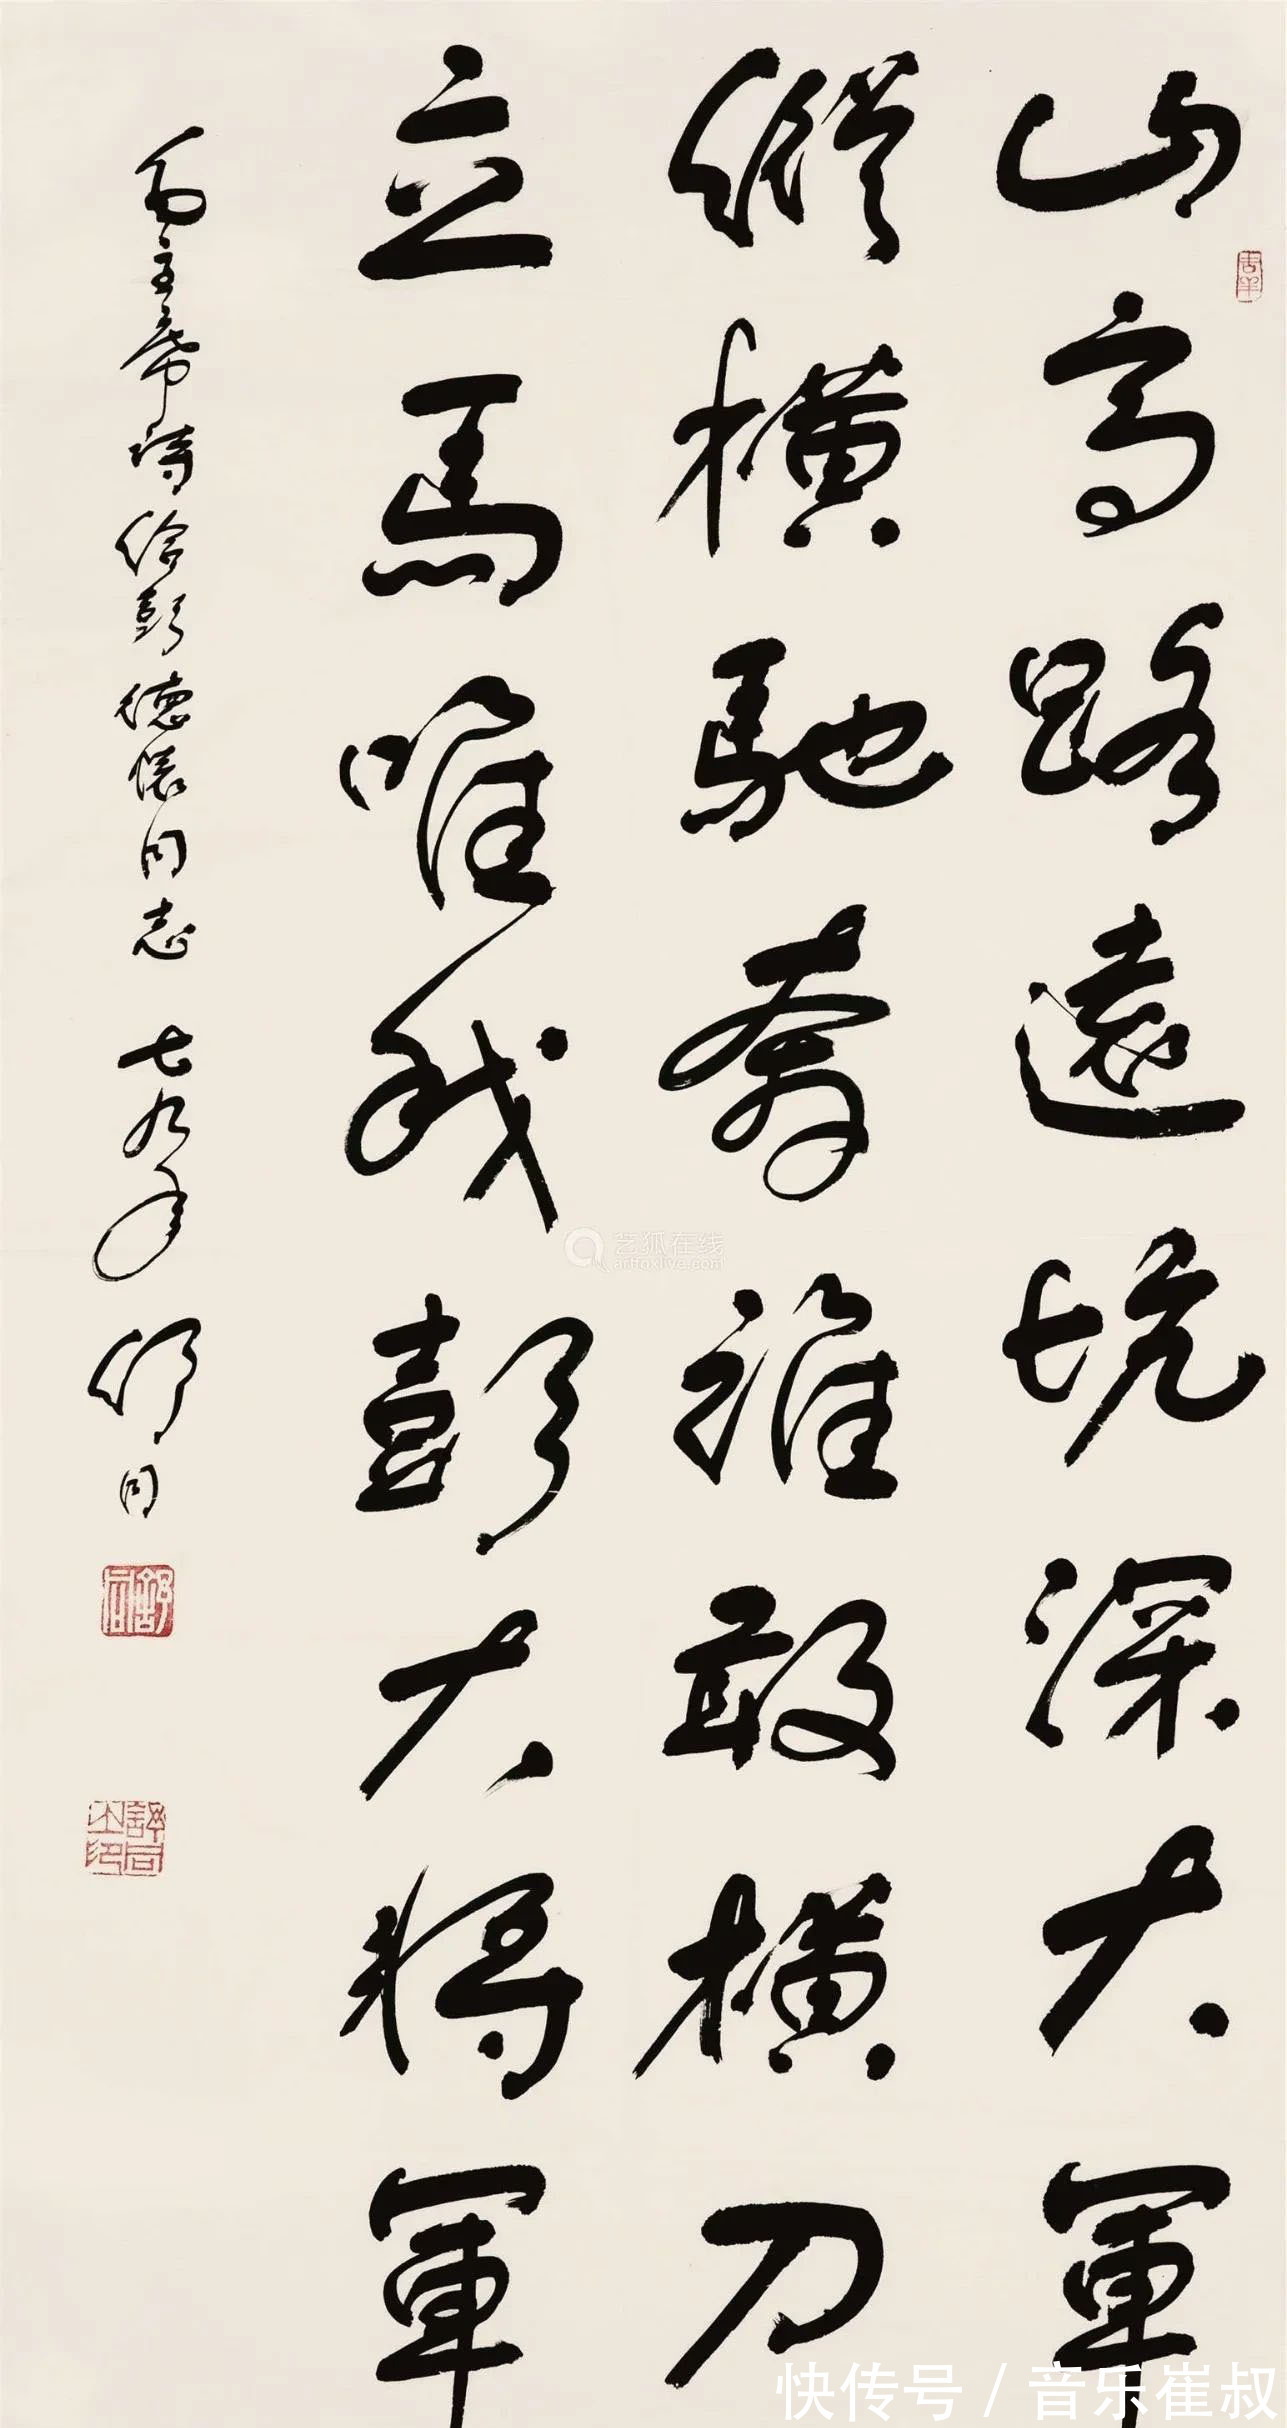 山高路遠坑深大軍
縱橫馳奔誰敢橫刀
立馬唯我彭大将軍
毛主席詩給彭德懷同志 七九年 舒同
吉羊
舒同
舒同之印
艺狐在线
artfoxlive.com
快传号 / 音乐崔叔